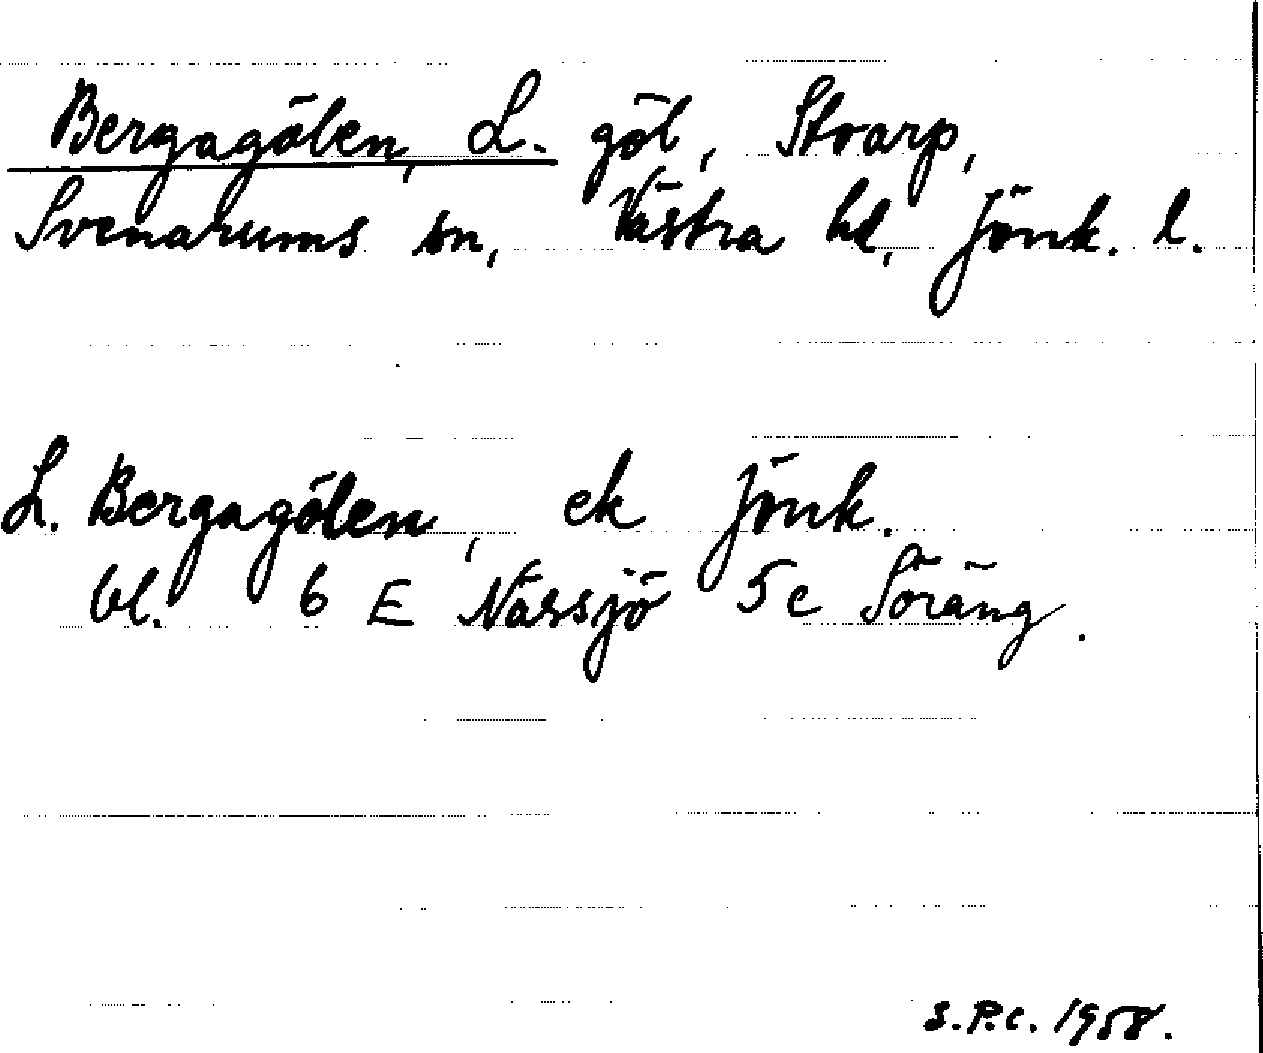 Bergagölen, L. göl, Stvarp,
Svenarums sn, Västra hd, Jönk. l.
L. Bergagölen, ek Jönk.
bl. 6 E Nässjö 5c Söräng.
S.P.C. 1958.